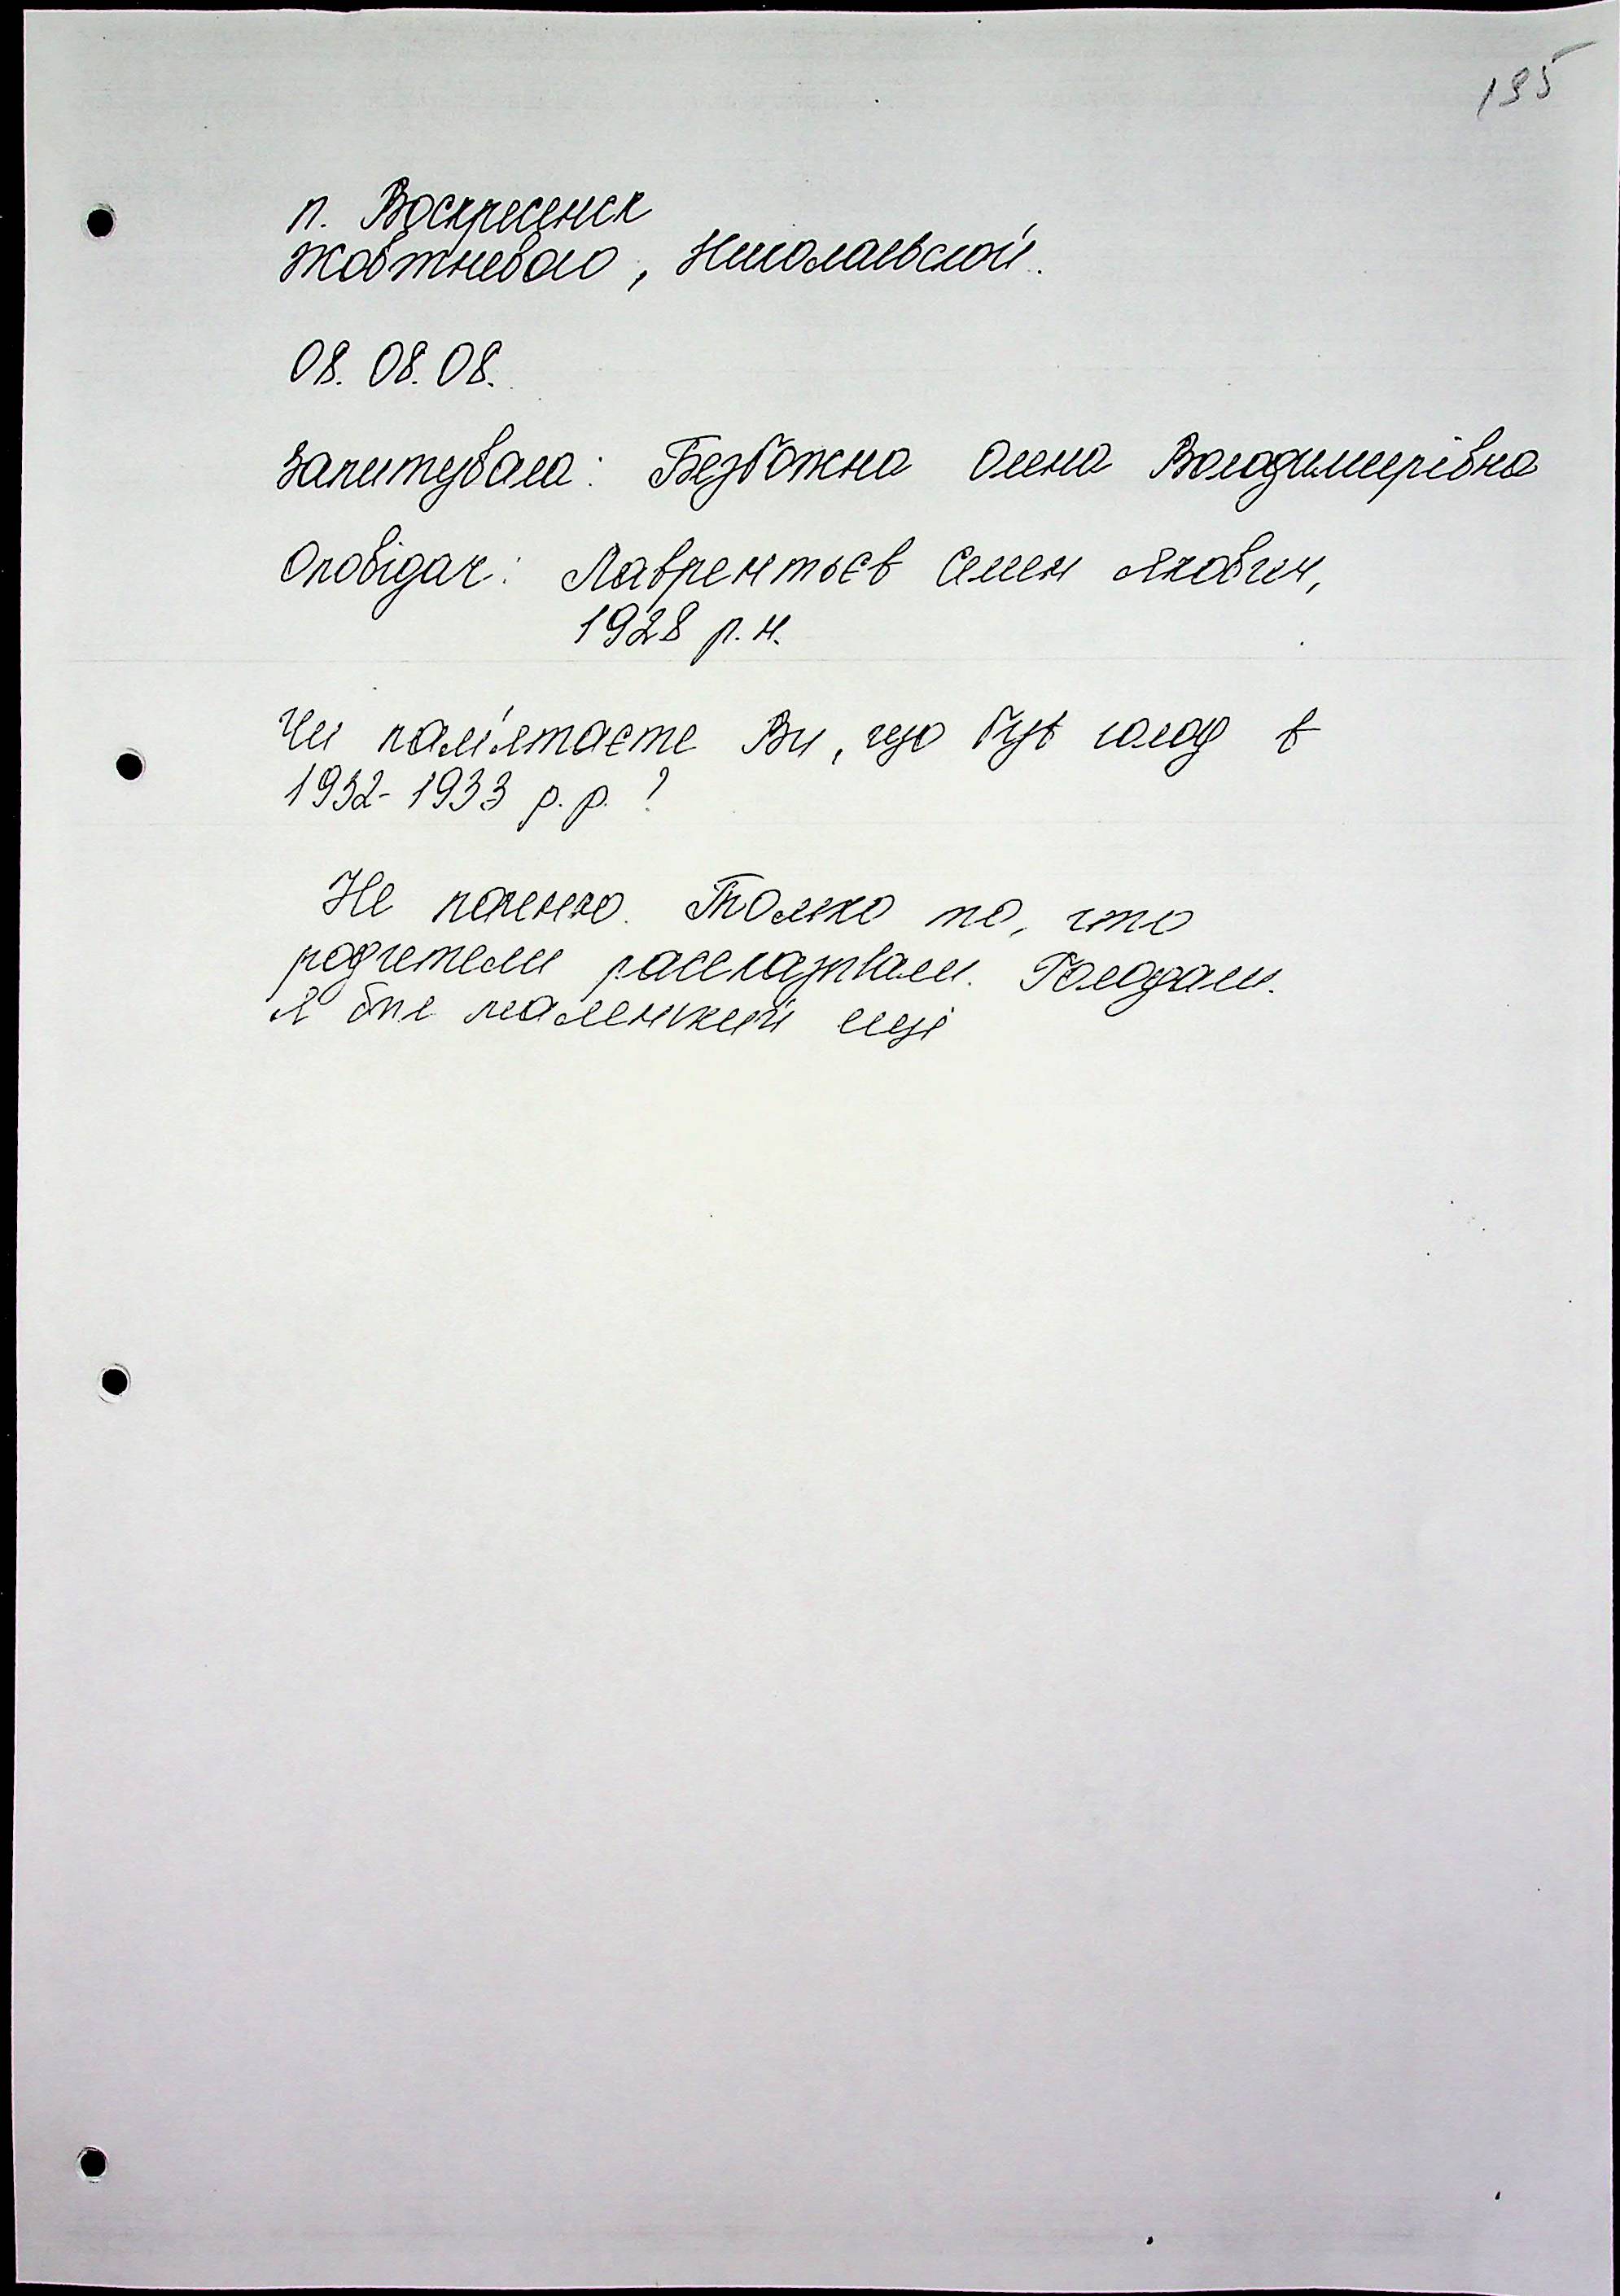 195
п. Воскресенск
Жовтневого, Николаевской.
08. 08. 08.
Запитувала: Безбожна Олена Володимирівна
Оповідач: Лаврентьєв Семен Якович,
1928 р. н.
Чи пам'ятаєте Ви, що був голод в
1932-1933 р. р. ?
Не помню. Только то, что
родители рассказывали. Голодали.
Я был маленький ещё